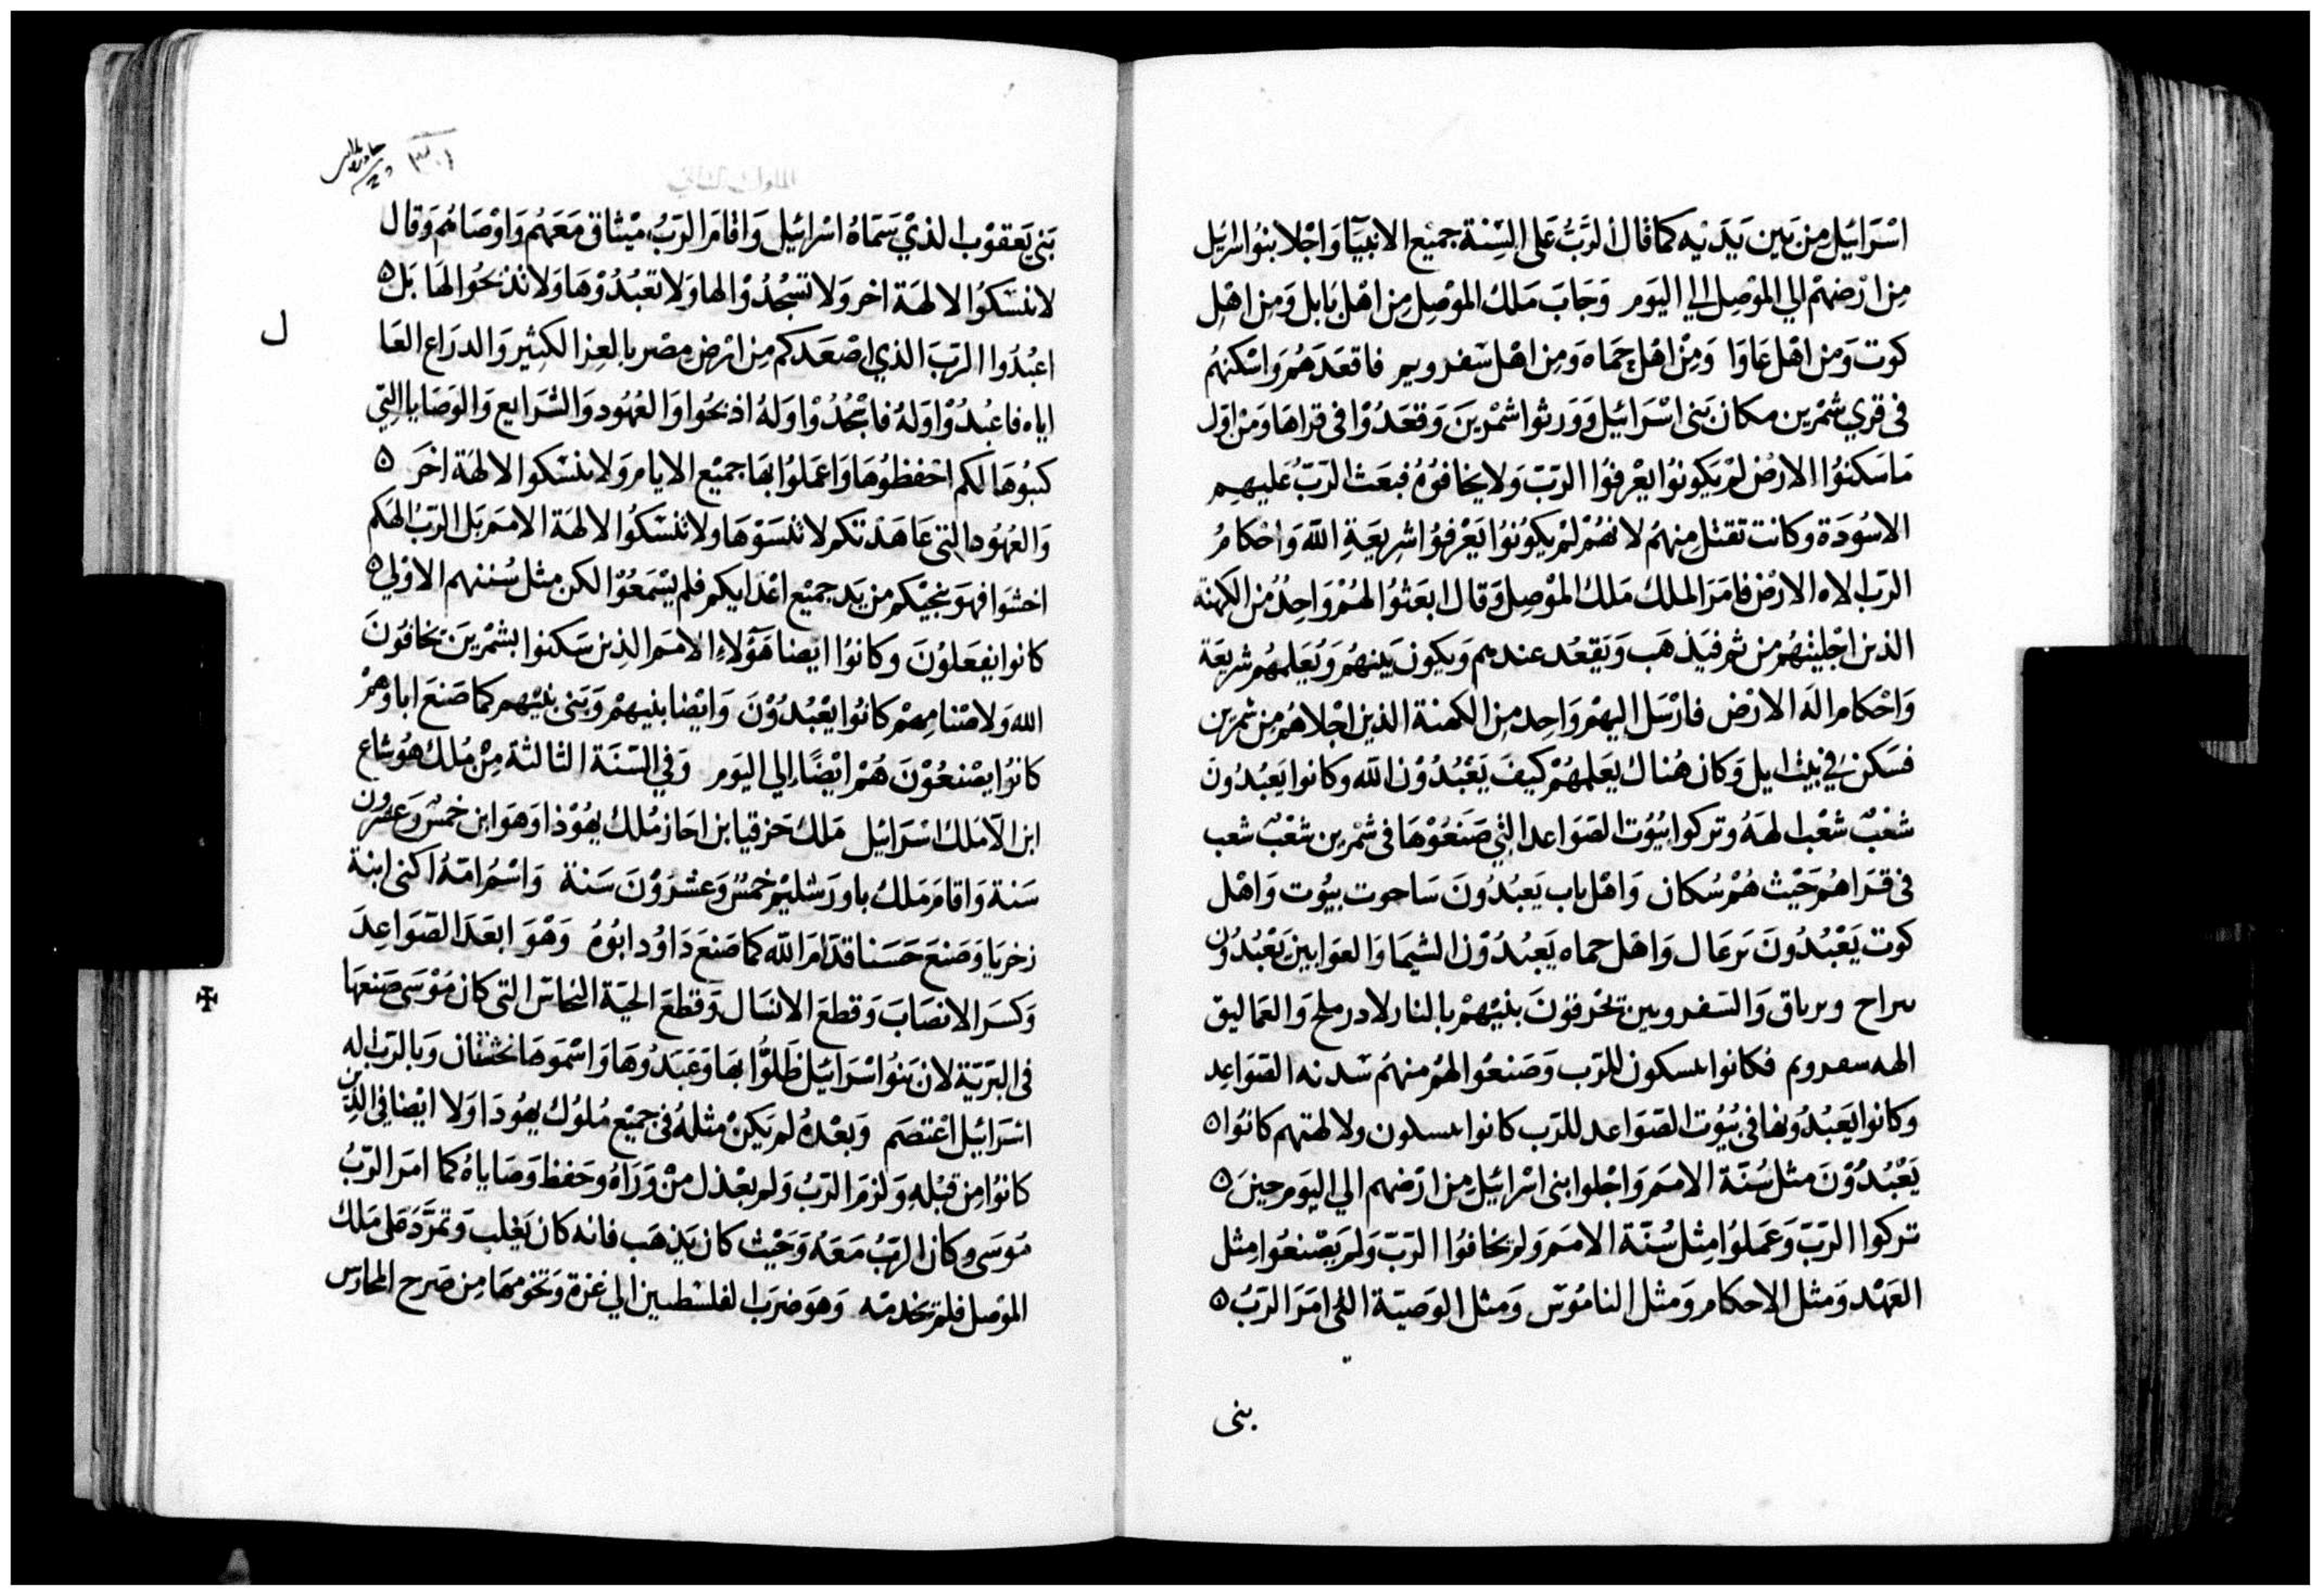 اسْرَائيل مِن بَين يَدَيْه كما قال الرَّبُّ عَلى الْسِنة جميْع الانبيَآ وَاجْلا بنُوا اسْرَائيل
مِن ارْضهمْ الي الموْصِل الي اليَوم وَجَابَ مَلك الموْصِل مِن اهْل بَابل وَمِن اهْل
كوت وَمِن اهْل عَاوَا وَمِنْ اهْل حَمَاه وَمِن اهْل سَفرويم فاقعَدَهُم وَاسْكنهُم
في قري شمْرين مكان بَنى اسْرَائيل وَوَرثوا شمْرينَ وَقعَدُوْا في قراهَا وَمِنْ اوّل
مَا سَكنوُا الارْض لمْ يَكونوُا يعْرفوُا الرَّبّ وَلا يخافوُهُ فبَعَث الرَّبّ عَليهم
الاسُودَة وكانت تقتل مِنهمُ لانهُمْ لمْ يَكوُنوُا يَعْرفوُا شريعَةِ الله وَاحْكامُ
الرّب الاه الارْض فامَرَ الملك مَلك الموْصِل وَقال ابعَثوُا لهُمْ وَاحِدُ مِن الكهنة
الذين اجْليْتهُم من ثم فيَذهَب وَيَقعُد عندهم وَيكون بَينهُم وَيُعَلمهُم شريعَة
وَاحْكام الَه الارْض فارْسَل اليهمْ وَاحِد مِن الكهنة الذين اجْلاهُم مِن شمرين
فسَكن في بيْت ايل وَكان هُناك يعَلمهُمْ كيفَ يَعْبُدُوْن الله وكانوا يَعبُدُونَ
شعْبٌ شعْب الهَهُ وتركوا بيُوُت الصَوَاعد التي صَنَعُوْهَا في شمْرين شعْبٌ شعب
في قرَاهُم حَيْث هُمْ سُكان وَاهْل باب يَعبُدُونَ ساحوت بيُوت وَاهْل
كوت يَعْبُدُونَ نرعال وَاهْل حماه يَعبُدُوْن الشيمَا وَالعوَابينَ يَعْبُدُوْن
سراح وبرباق وَالسَفرويين تحْرقوْنَ بنيْهمْ بالنار لادرملخ وَالعمَاليق
الهه سفرويم فكانوا ينسكون للرَب وَصَنعُوا لهُمْ منهمُ سَدنه الصَوَاعِد
وكانوا يَعبُدُونها في بيُوُت الصَوَاعد للرَب كانوا ينسكون ولالهتهم كانوُا ٥
يَعْبُدُوْنَ مثل سُنَّة الامَم وَاجْلوا بني اسْرَائيل مِن ارْضهم الي اليَوم حينَ ٥
تركوا الرَبّ وَعَملوُا مِثل سُنَّة الامَم وَلم يخافوُا الرَبّ وَلم يَصْنعُوا مِثل
العَهْد وَمثل الاحكام وَمثل النامُوسَ وَمثل الوَصيَّة التي امَرَ الرَبُ ٥
بنى
٣٠١
بَني يَعقوْب الذيْ سَمَاهُ اسْرائيل وَاقامَ الرَبُ ميْثاق مَعَهُم وَاوْصَاهُم وَقال
لا تنسَكوُا الالهَة اخر وَلا تسْجُدُوْا لها وَلا تعْبُدُوْهَا وَلا تذبَحُوا لهَا بَل ٥
اعْبُدُوا الرَبّ الذي اصْعَدَكم مِن ارْض مصْر بالعِز الكثِير وَالدرَاع العَا
ل
اياه فاعبُدُوْا وَلهُ فاسْجُدُوْا وَلهُ اذبَحُوا وَالعُهُود وَالشرَايع وَالوَصَايا التِي
كتبوُهَا لكم احْفظوُهَا وَاعمَلوُا بهَا جميْع الايام وَلا تنسَكوا الالهَة اخَر ٥
وَالعُهُود التي عَاهَدْتكم لا تنْسَوْهَا وَلا تنْسَكوُا الالهَة الامَم بَل الرَبّ الهَكم
اخشوَا فهوَ ينجيْكم من يَد جميْع اعْدَايكم فلم يَسْمَعُوْا لكن مثل سُننهم الاوْلي ٥
كانوا يفعَلوُنَ وكانوُا ايْضا هَؤلاءِ الامَم الذِين سَكنوا بشمْرينَ يخافوُنَ
الله وَلاصْنامِهمْ كانوُا يَعْبُدُوْنَ وَايْضا بنيهمْ وَبَنى بنيْهم كما صَنعَ اباوَهمْ
كانوُا يصْنعُوْنَ هُمْ ايْضًا الي اليَوم وَفي السّنَة الثالثة مِنْ مُلك هُوْشاع
ابن الآ مَلك اسْرَائيل مَلك حَزقيا بن احَاز مُلك يهُوْذا وَهوَ ابن خمسٌ وَعشرون
سَنة وَاقامَ مَلك باورَشليم خمسٌ وَعشرَوْنَ سَنة وَاسْمُ امّهُ اكنى ابنة
زخريَا وَصَنعَ حَسَنا قدّامَ الله كما صَنعَ دَاوُد ابوُهُ وَهْوَ ابعَدَ الصّوَاعِدَ
وَكسَر الانصَابَ وَقطعَ الانسَال وَقطعَ الحيّة النحاسَ التى كان مُوْسَى صَنعهَا
في البَرّيّة لان بَنوُا اسْرَائيل ظلوُّا بهَا وَعَبَدُوهَا وَاسْمَوهَا نحشثان وَبالرَب اله
اسْرَائيل اعْتصَم وَبعْدهُ لم يَكنْ مثلهُ في جميْع مُلوُك يهوُدَا وَلا ايْضا في الذِين
كانوُا مِن قبْلهِ وَلزمَ الرَبُّ وَلم يعْدل مِنْ وَرَآهُ وحَفظ وَصَاياهُ كما امَرَ الرَبُّ
مُوسَى وكان الرَبُّ مَعَهُ وَحَيْث كان يَذهَب فانه كان يَغلب وَتمرَّدَ عَلى مَلك
الموْصل فلم يخدمْه وَهوَ ضرَب الفلسْطيين الي غزة وَتخومهَا مِن صَرح المحارس